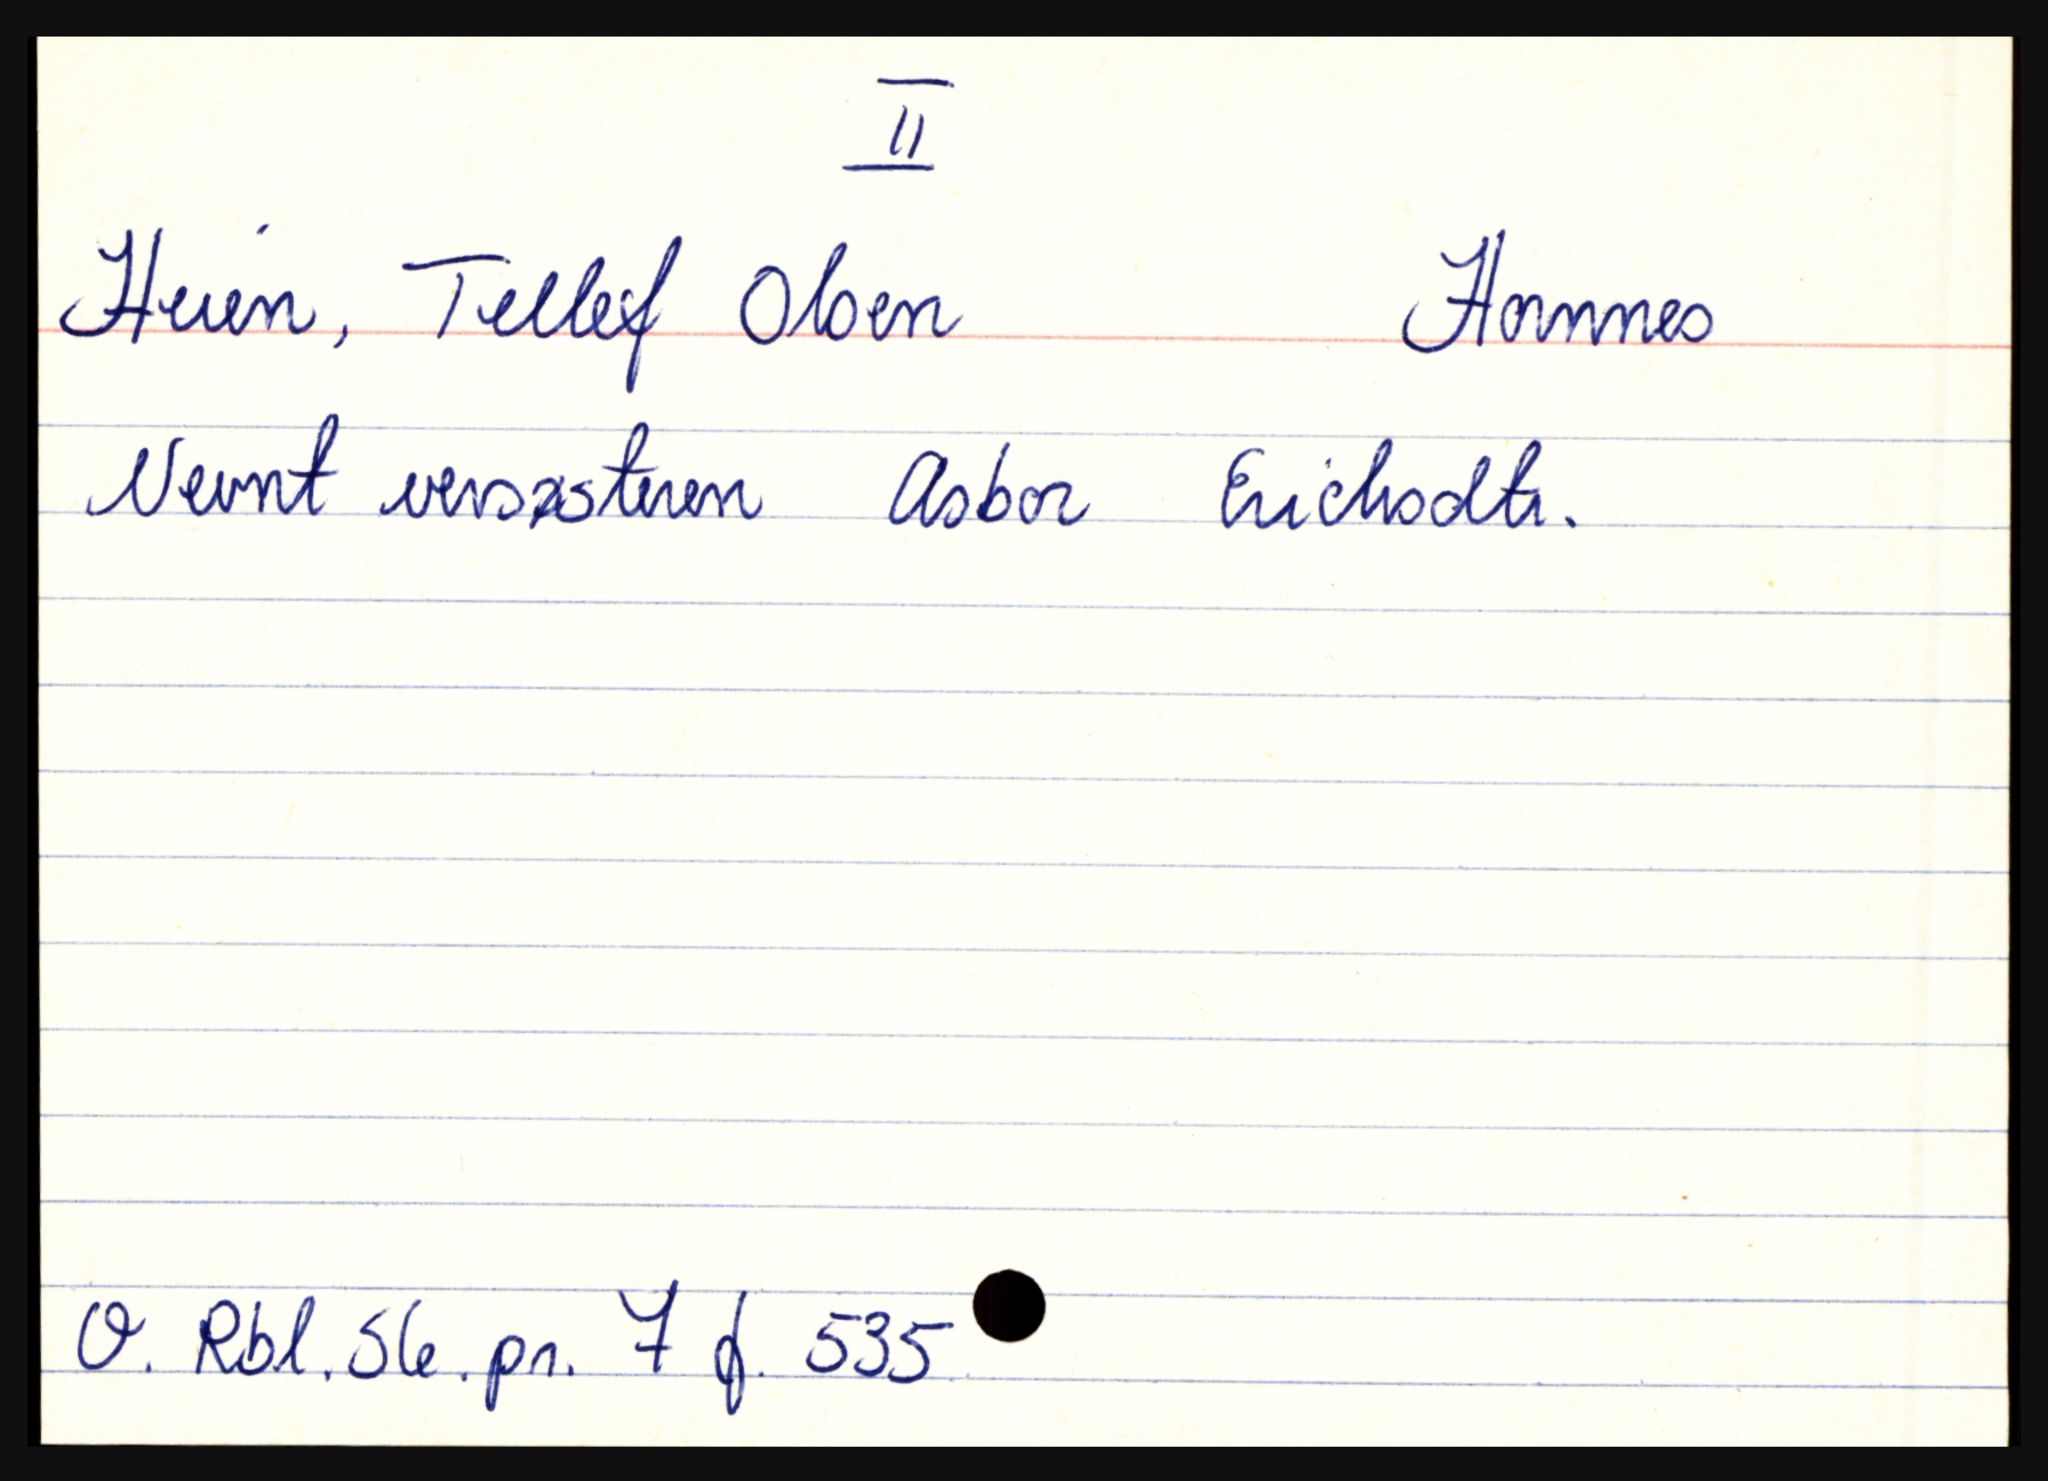 II
Heien, Tellef Olsen Hornnes
Nevnt versøsteren Asbor Erichsdtr.
O. Rbl. 56. pr. 7 f. 535